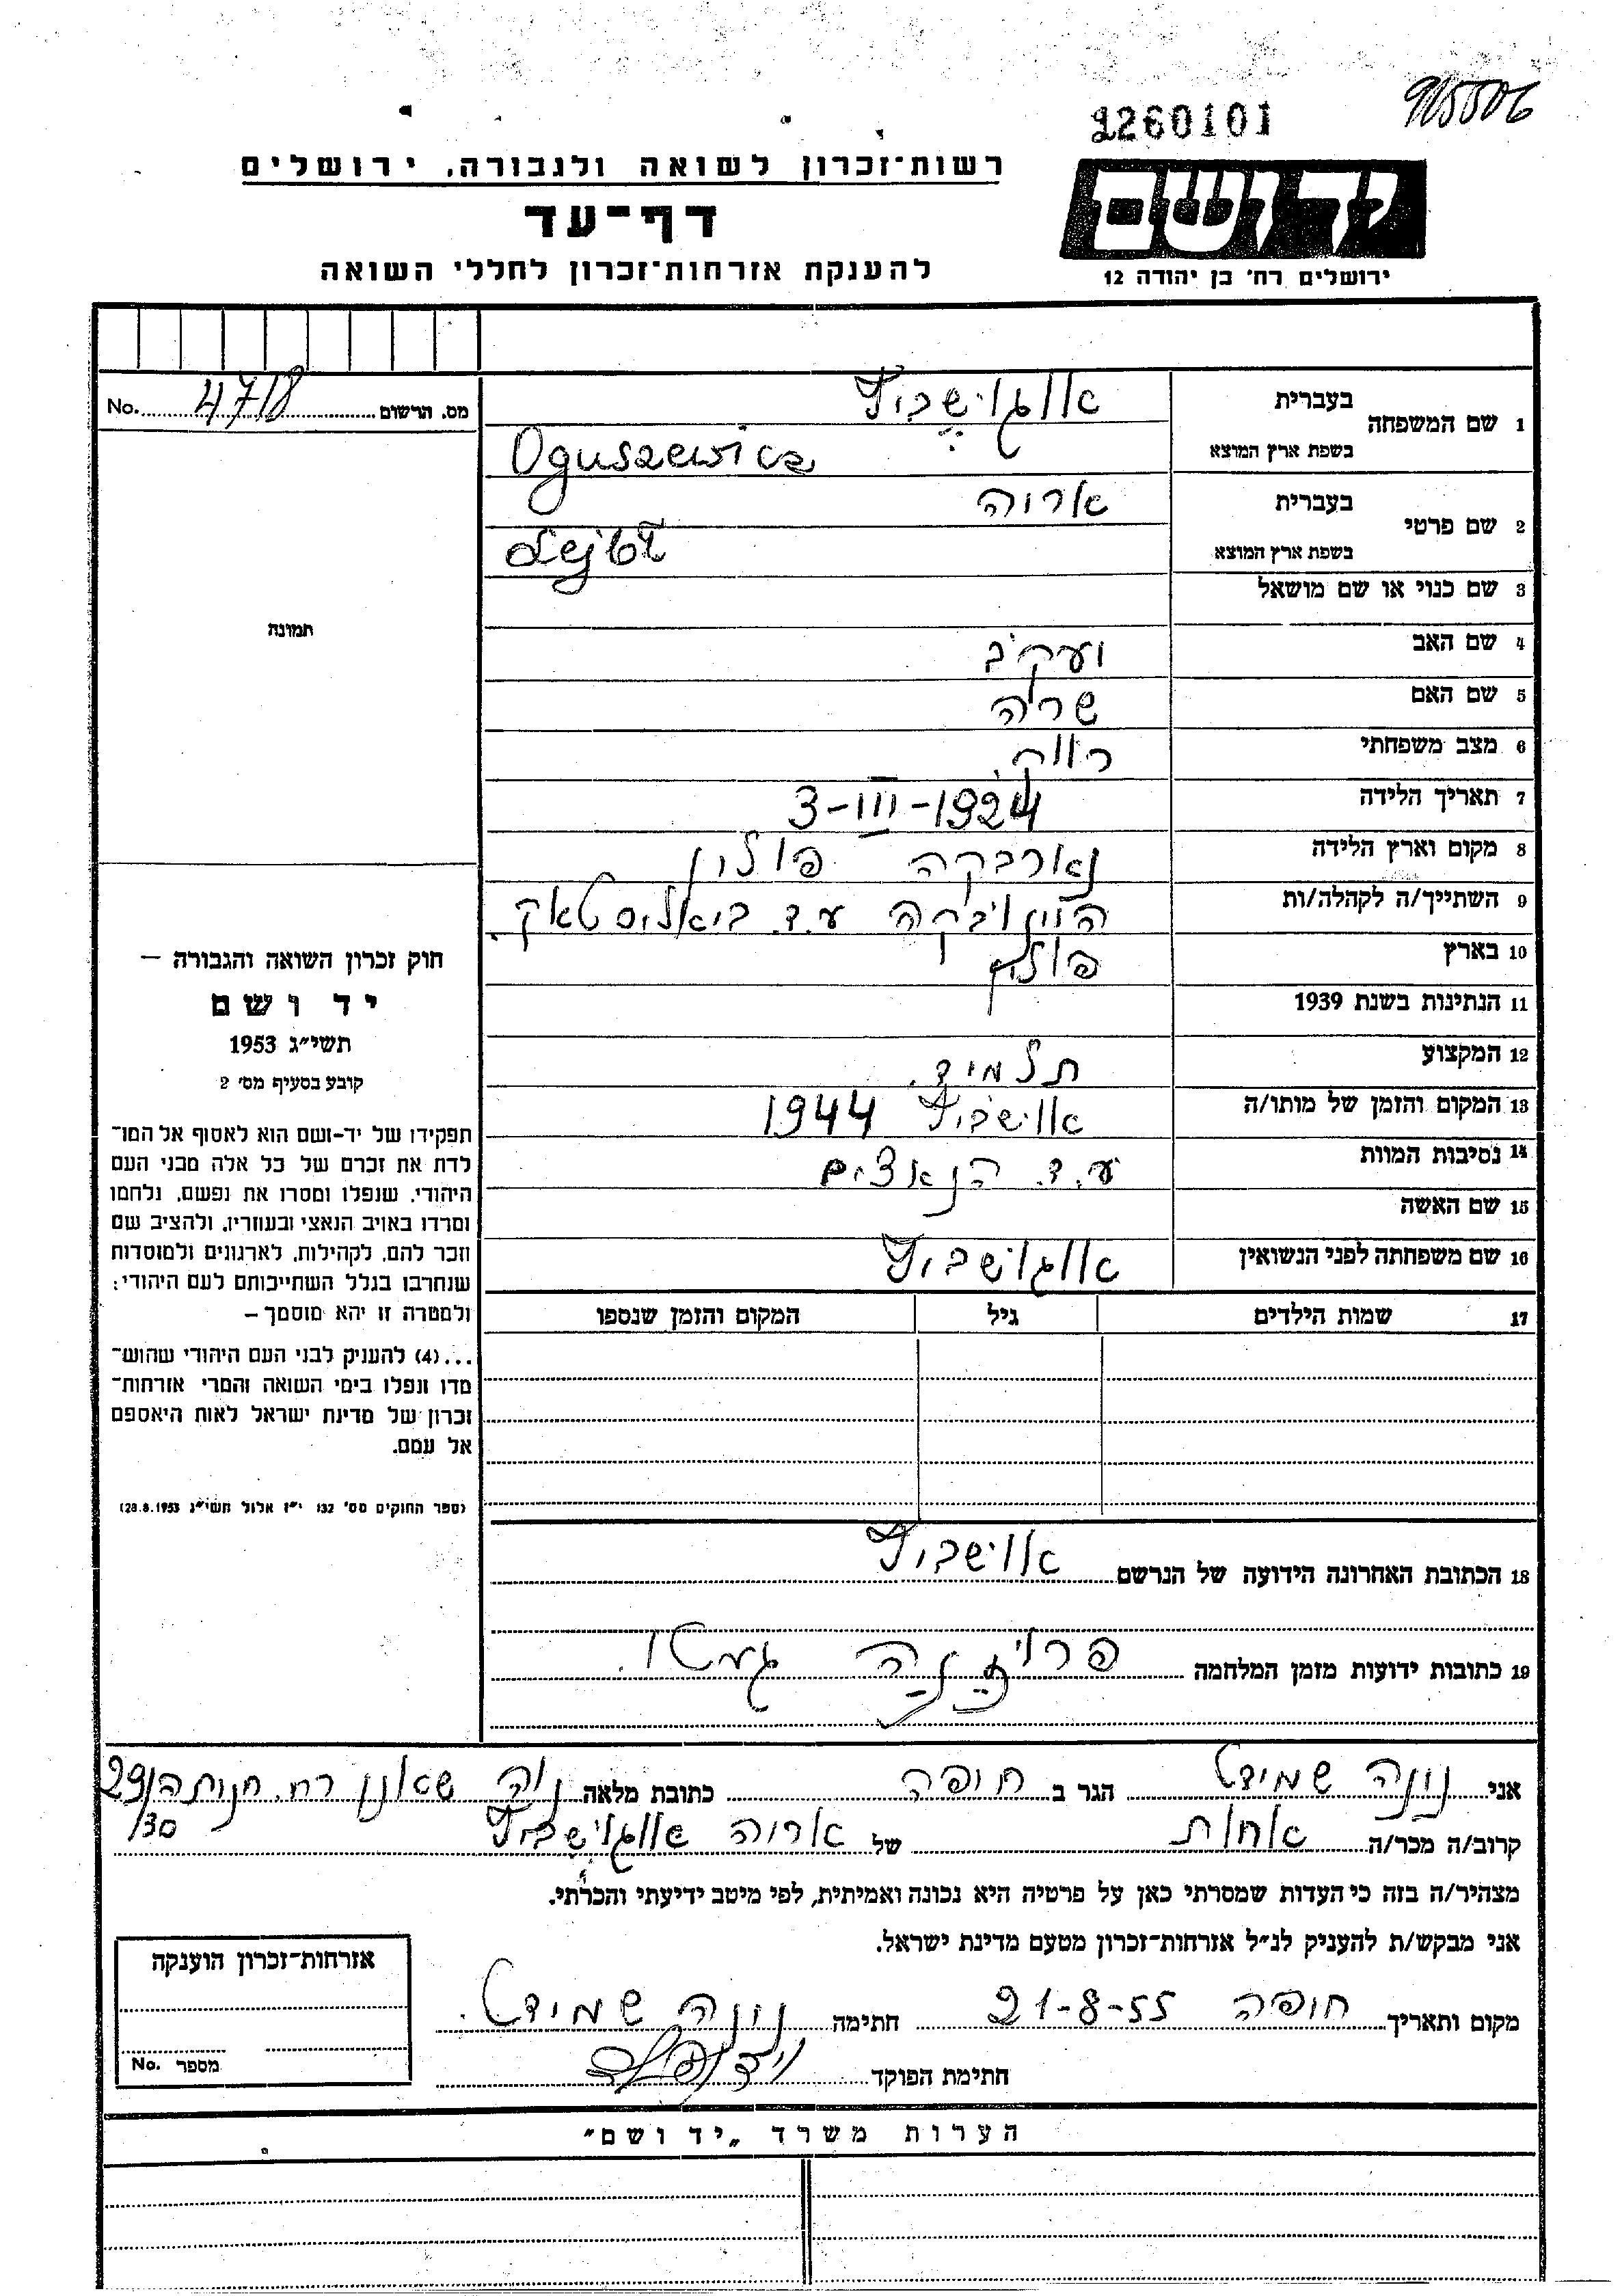 1260101
915506
רשות־זכרון לשואה ולגבורה, ירושלים
דף־עד
להענקת אזרחות־זכרון לחללי השואה
יד ושם
ירושלים רח' בן יהודה 12
מס. הרשום 4718 No.
תמונה
1 שם המשפחה
בעברית אוגושביץ
בשפת ארץ המוצא Oguszewicz
2 שם פרטי
בעברית אריה
בשפת ארץ המוצא
3 שם כנוי או שם מושאל
4 שם האב יעקב
5 שם האם שרה
6 מצב משפחתי רווק
7 תאריך הלידה 3-III-1924
8 מקום וארץ הלידה נארבקה פולין
9 השתייך/ה לקהלה/ות ע.י. ביאליסטאק.
10 בארץ פולין
11 הנתינות בשנת 1939
12 המקצוע תלמיד.
13 המקום והזמן של מותו/ה אוישביץ 1944
14 נסיבות המוות ע.י. הנאצים
15 שם האשה
16 שם משפחתה לפני הנשואין אוגושביץ
17 שמות הילדים גיל המקום והזמן שנספו
18 הכתובת האחרונה הידועה של הנרשם אוישביץ
19 כתובות ידועות מזמן המלחמה פרוזנה געטו.
חוק זכרון השואה והגבורה —
יד ושם
תשי״ג 1953
קובע בסעיף מס׳ 2
תפקידו של יד-ושם הוא לאסוף אל המו־
לדת את זכרם של כל אלה מבני העם
היהודי, שנפלו ומסרו את נפשם, נלחמו
ומרדו באויב הנאצי ובעוזריו, ולהציב שם
וזכר להם, לקהילות, לארגונים ולמוסדות
שנחרבו בגלל השתייכותם לעם היהודי;
ולמטרה זו יהא מוסמך —
...(4) להעניק לבני העם היהודי שהוש־
מדו ונפלו בימי השואה והמרי אזרחות־
זכרון של מדינת ישראל לאות היאספם
אל עמם.
(ספר החוקים מס׳ 132 י״ז אלול תשי״ג 28.8.1953)
אני נונה שמידט הגר ב חיפה כתובת מלאה נוה שאנן רח. 29
/30
קרוב/ה מכר/ה אחות של אריה אוגושביץ
מצהיר/ה בזה כי העדות שמסרתי כאן על פרטיה היא נכונה ואמיתית, לפי מיטב ידיעתי והכרתי.
אני מבקש/ת להעניק לנ״ל אזרחות־זכרון מטעם מדינת ישראל.
מקום ותאריך חיפה 21-8-55 חתימה נונה שמידט.
חתימת הפוקד
אזרחות־זכרון הוענקה
מספר No.
הערות משרד „יד ושם״